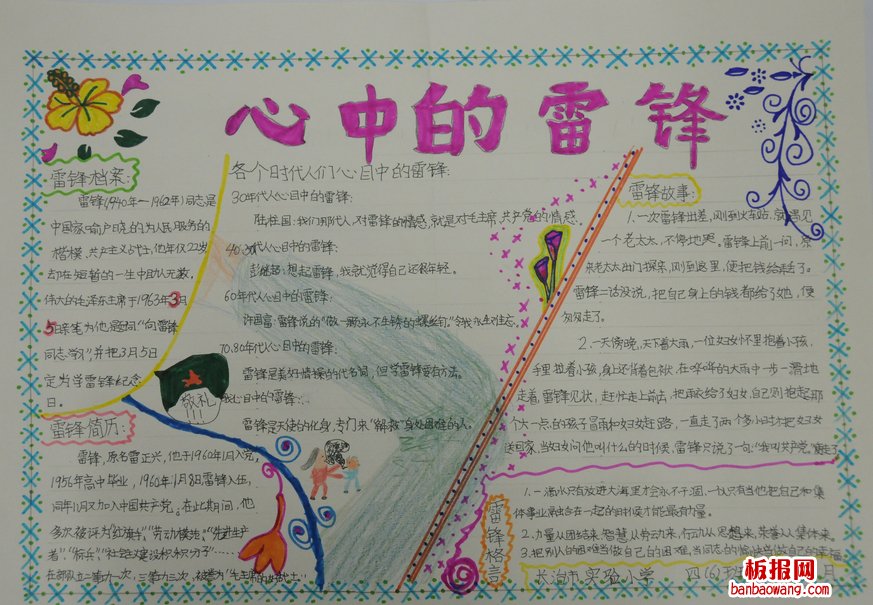 心中的雷锋
雷锋档案:
雷锋(1940年—1962年)同志,是
中国家喻户晓的为人民服务的
楷模,共产主义战士,他年仅22岁
却在短暂的一生中助人无数。
伟大的毛泽东主席于1963年3月
5日亲笔为他题词"向雷锋
同志学习"并把3月5日
定为学雷锋纪念
日。
雷锋简历:
雷锋,原名雷正兴,他于1960年1月入党,
1956年高中毕业,1960年1月8日雷锋入伍,
同年11月又加入中国共产党,在此期间,他
多次被评为"红旗手""劳动模范""先进生产
者""标兵""社会建设积极分子"……
在部队立二等功一次,三等功三次,被誉为"毛主席的好战士…
各个时代人们心目中的雷锋:
30年代人心目中的雷锋:
陆柱国:我们那代人,对雷锋的情感,就是对毛主席,共产党的情感。
40、50代人心目中的雷锋:
想起雷锋,我就觉得自己还很年轻。
60年代人心目中的雷锋:
许国富:雷锋说的"做一颗永不生锈的螺丝钉"令我永生难忘。
70.80年代人心目中的雷锋:
雷锋是美好情操的代名词,但学雷锋要有方法。
我心目中的雷锋:
雷锋是天使的化身,专门来"解救"身处困难的人。
敬礼!!!
雷锋故事:
1.一次雷锋出差,刚到火车站,就遇见
一个老太太,不停地哭。雷锋上前一问,原
来老太太出门探亲,刚到这里,便把钱给丢了。
雷锋二话没说,把自己身上的钱都给了她,便
匆匆走了。
2.一天傍晚,天下着大雨,一位妇女怀里抱着小孩,
手里拉着小孩,身上还背着包袱,在哗哗的大雨中一步一滑地
走着,雷锋见状,赶忙走上前去,把雨衣给了妇女,自己则抱起那
个大一点的孩子冒雨和妇女赶路,一直走了两个多小时才把妇女
送回家,当妇女问他叫什么的时候,雷锋只说了一句:"我叫共产党。"便走了
雷锋格言
1.一滴水只有放进大海里才会永不干涸,一个人只有当他把自己和集
体事业融合在一起的时候才能最有力量。
2.力量从团结来,智慧从劳动来,行动从思想来,荣誉从集体来。
3.把别人的困难当做自己的困难,当同志的愉快当做自己的幸福
长治市实验小学 四(6)班
板报网
banbaowang.com